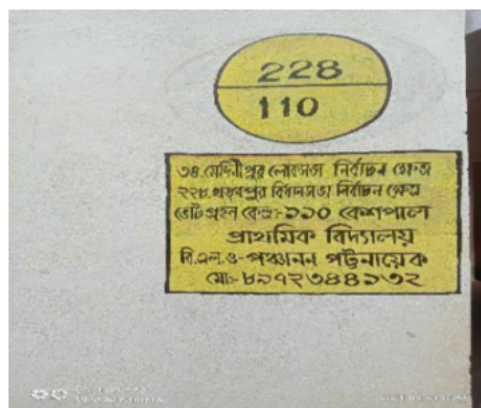 228
110
৩৪.মেদিনীপুর লোকসভা নির্বাচন ক্ষেত্র
২২৮.খড়গপুর বিধানসভা নির্বাচন ক্ষেত্র
ভোট গ্রহন কেন্দ্র:-১১০ কেশপাল
প্রাথমিক বিদ্যালয়
বি.এল.ও-পঞ্চানন পট্টনায়েক
মোঃ-৮৯৭২৩৪৪৯৩২